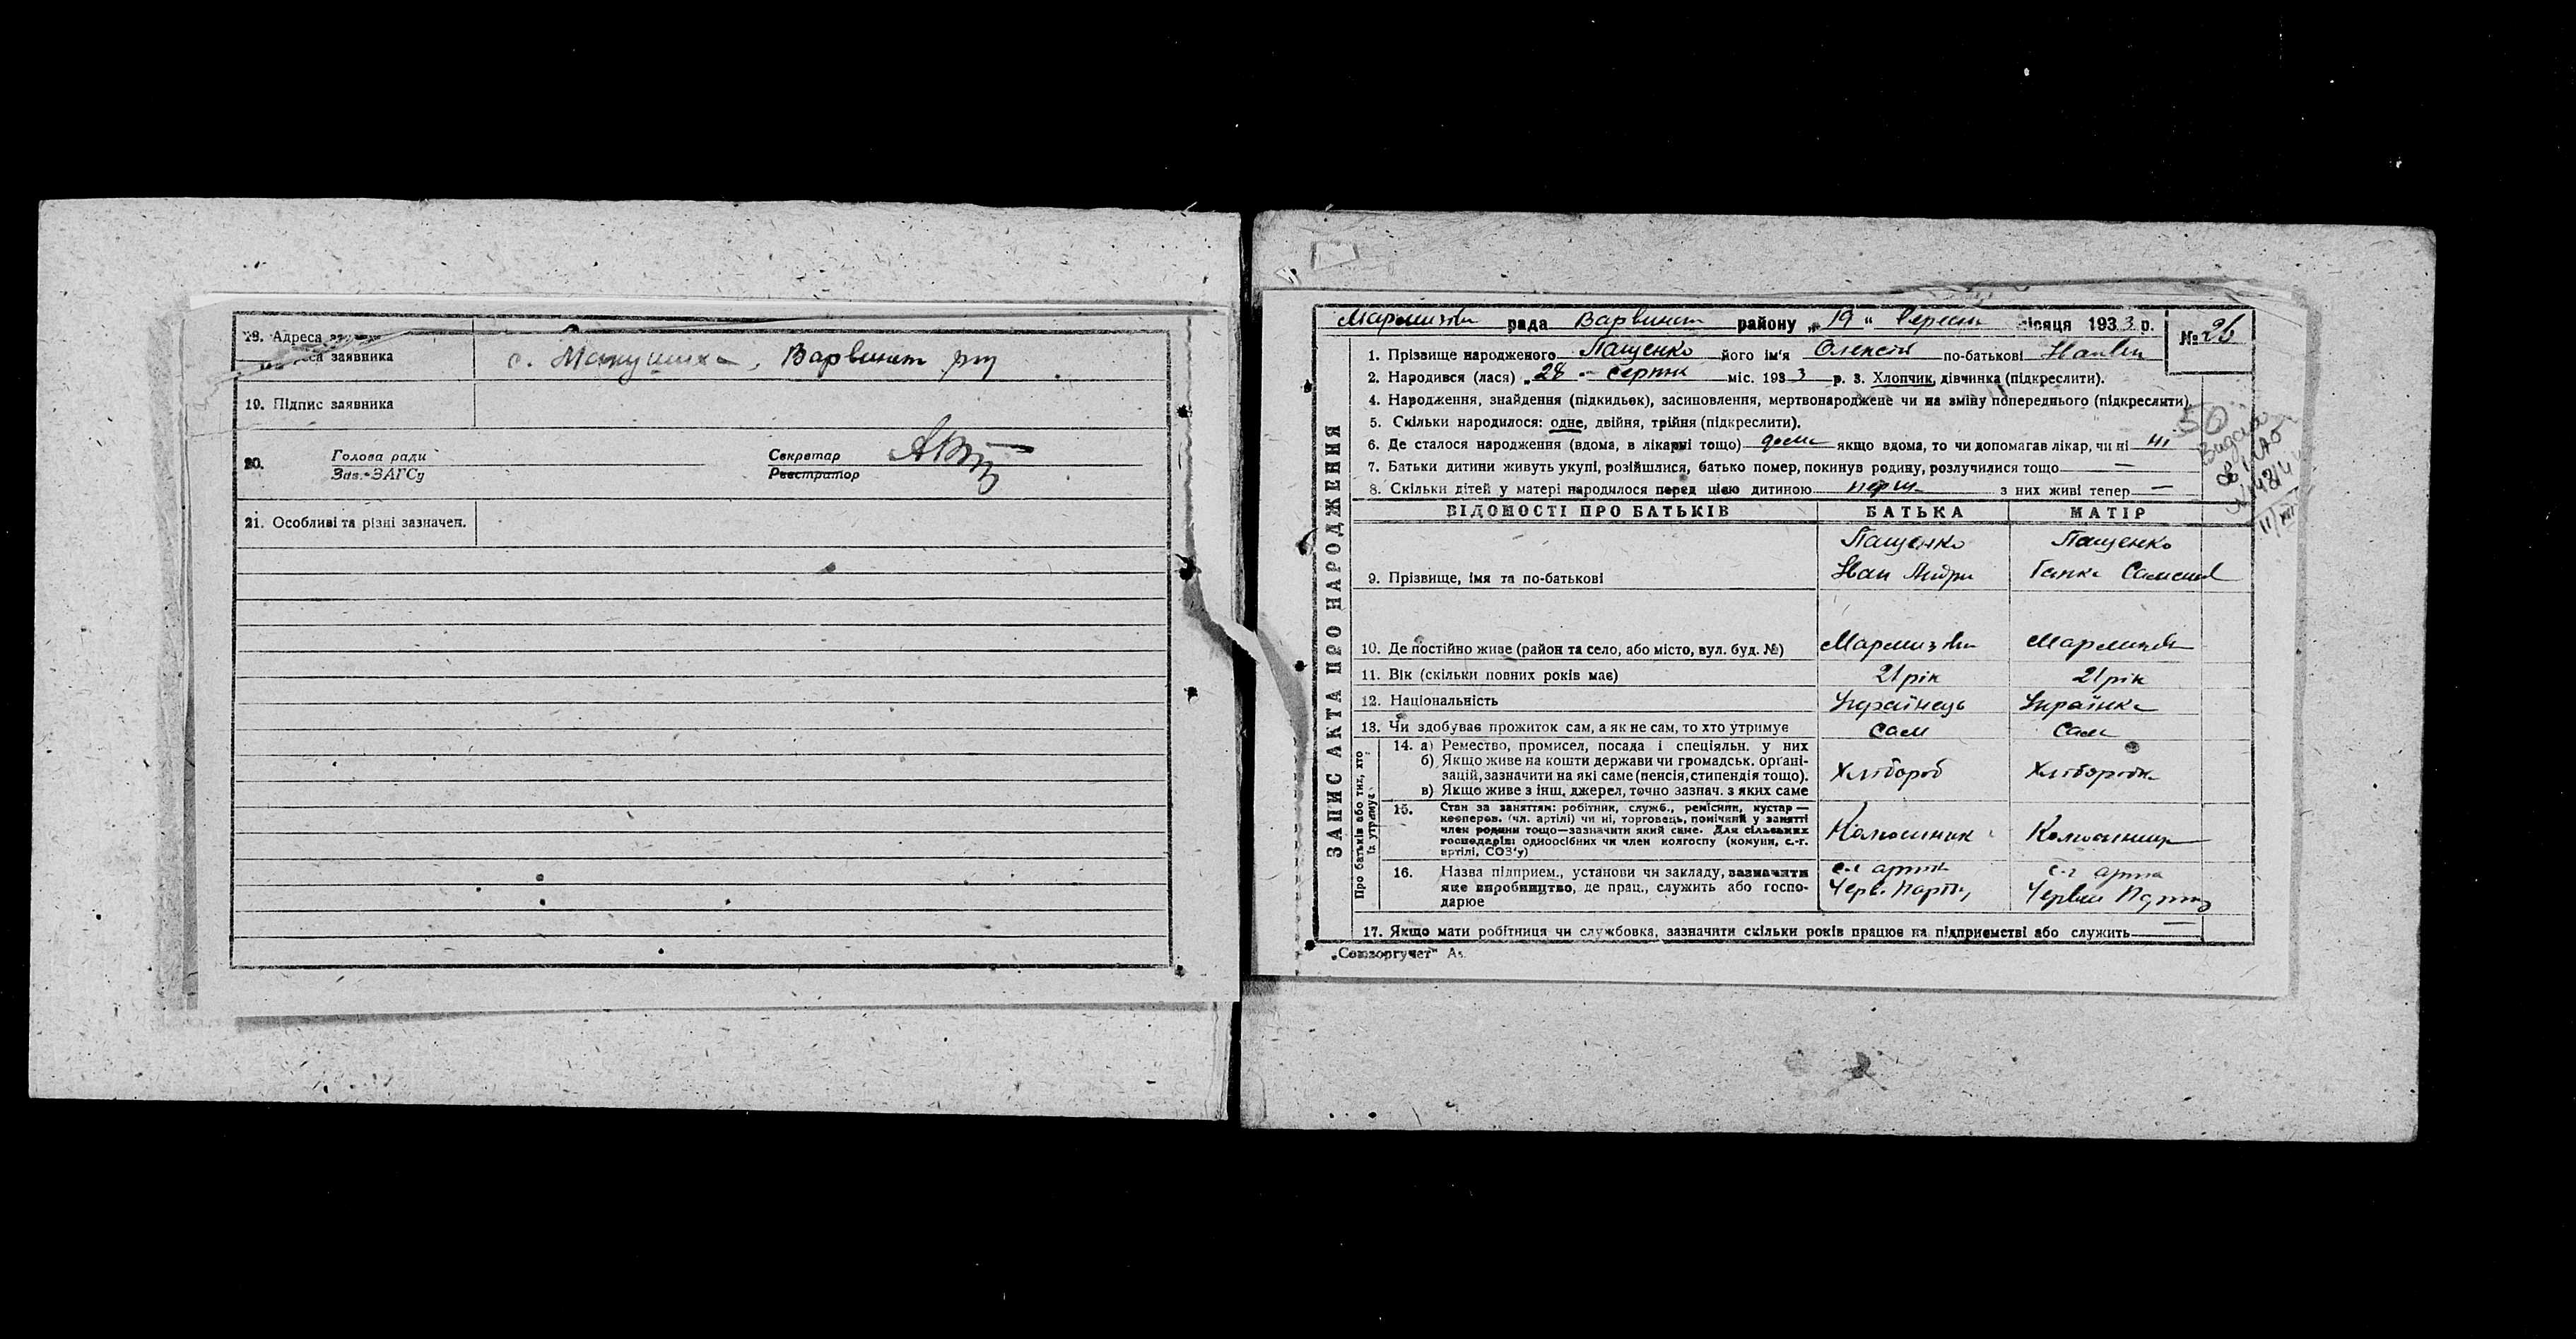 18. Адреса
заявника с. Макушиха, Варвинст р-ну
19. Підпис заявника
20. Голова ради Секретар
Зав. ЗАГСу Реєстратор
21. Особливі та різні зазначен.
ЗАПИС АКТА ПРО НАРОДЖЕННЯ
рада Варвинст району „19“ Вересн місяця 1933 р. № 26
1. Прізвище народженого Пащенко його ім'я Олексій по-батькові Іванвич
2. Народився (лася) „28 серпн міс. 1933 р. 3. Хлопчик, дівчинка (підкреслити).
4. Народження, знайдення (підкидьок), засиновлення, мертвонароджене чи на зміну попереднього (підкреслити).
5. Скільки народилося: одне, двійня, трійня (підкреслити).
6. Де сталося народження (вдома, в лікарні тощо) дома якщо вдома, то чи допомагав лікар, чи ні ні
7. Батьки дитини живуть укупі, розійшлися, батько помер, покинув родину, розлучилися тощо —
8. Скільки дітей у матері народилося перед цією дитиною перш з них живі тепер —
50
Видано
11/XII
ВІДОМОСТІ ПРО БАТЬКІВ БАТЬКА МАТІР
Пащенко Пащенко
9. Прізвище, імя та по-батькові Іван Андр Ганна
10. Де постійно живе (район та село, або місто, вул. буд. №)
11. Вік (скільки повних років має) 21 рік 21 рік
12. Національність Українець Українка
13. Чи здобуває прожиток сам, а як не сам, то хто утримує сам сама
Про батьків або тих, хто їх утримує
14. а) Ремество, промисел, посада і спеціяльн. у них
б) Якщо живе на кошти держави чи громадськ. орґані-
зацій, зазначити на які саме (пенсія, стипендія тощо). Хлібороб Хліборобка
в) Якщо живе з інш. джерел, точно зазнач. з яких саме
15. Стан за заняттям: робітник, служб., ремісник, кустар —
кооперов. (чл. артілі) чи ні, торговець, помічний у занятті
член родини тощо—зазначити який саме. Для сільських
господарів: одноосібних чи член колгоспу (комуни, с.-г.
артілі, СОЗ'у) Колгоспник Колгоспниця
16. Назва підприєм., установи чи закладу, зазначити с-г артіл с-г артіл
яке виробництво, де прац., служить або госпо- Черв. Парти, Червон Парти
дарює
17. Якщо мати робітниця чи службовка, зазначити скільки років працює на підприємстві або служить —
„Союзоргучет“